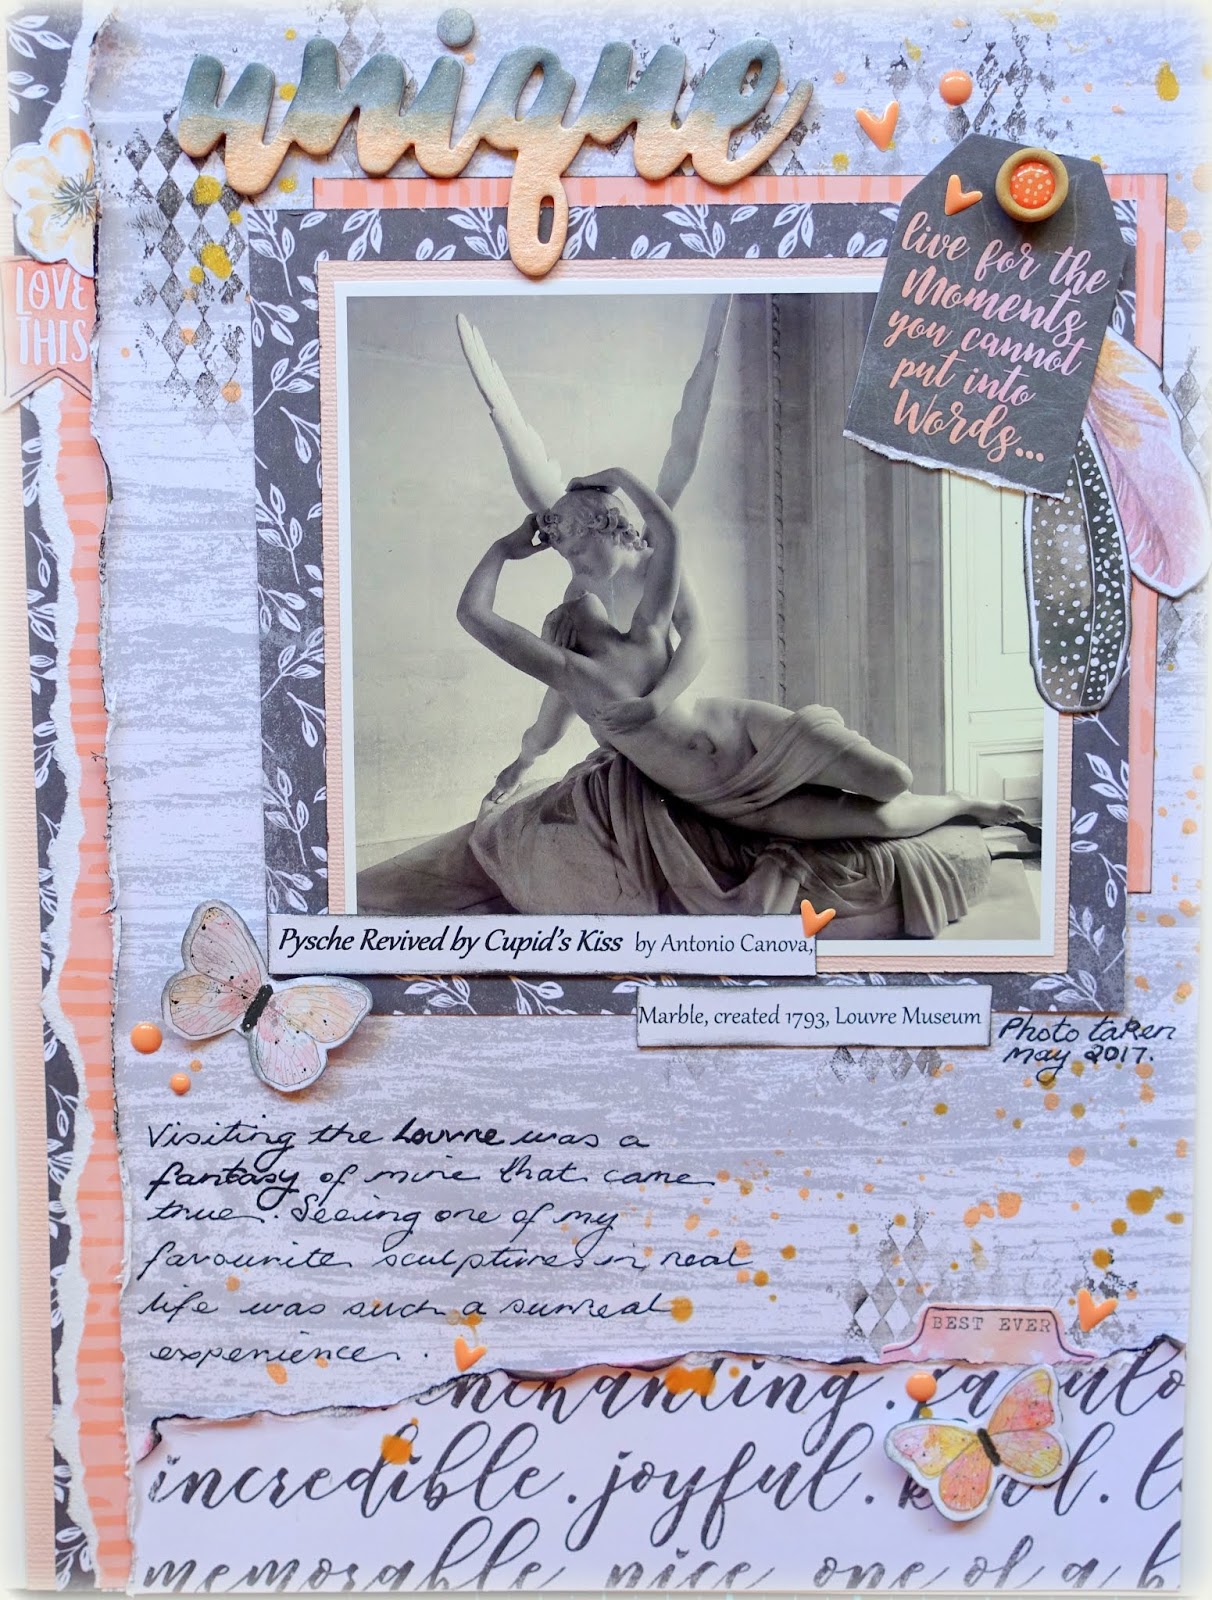 unique
LOVE
THIS
live for the
Moments
you cannot
put into
Words...
Pysche Revived by Cupid's Kiss by Antonio Canova,
Marble, created 1793, Louvre Museum
Photo taken
May 2017.
Visiting the Louvre was a
fantasy of mine that came
true. Seeing one of my
favourite sculptures in real
life was such a surreal
experience.
BEST EVER
nchanting.
incredible. joyful.
memorable. nice. one of a